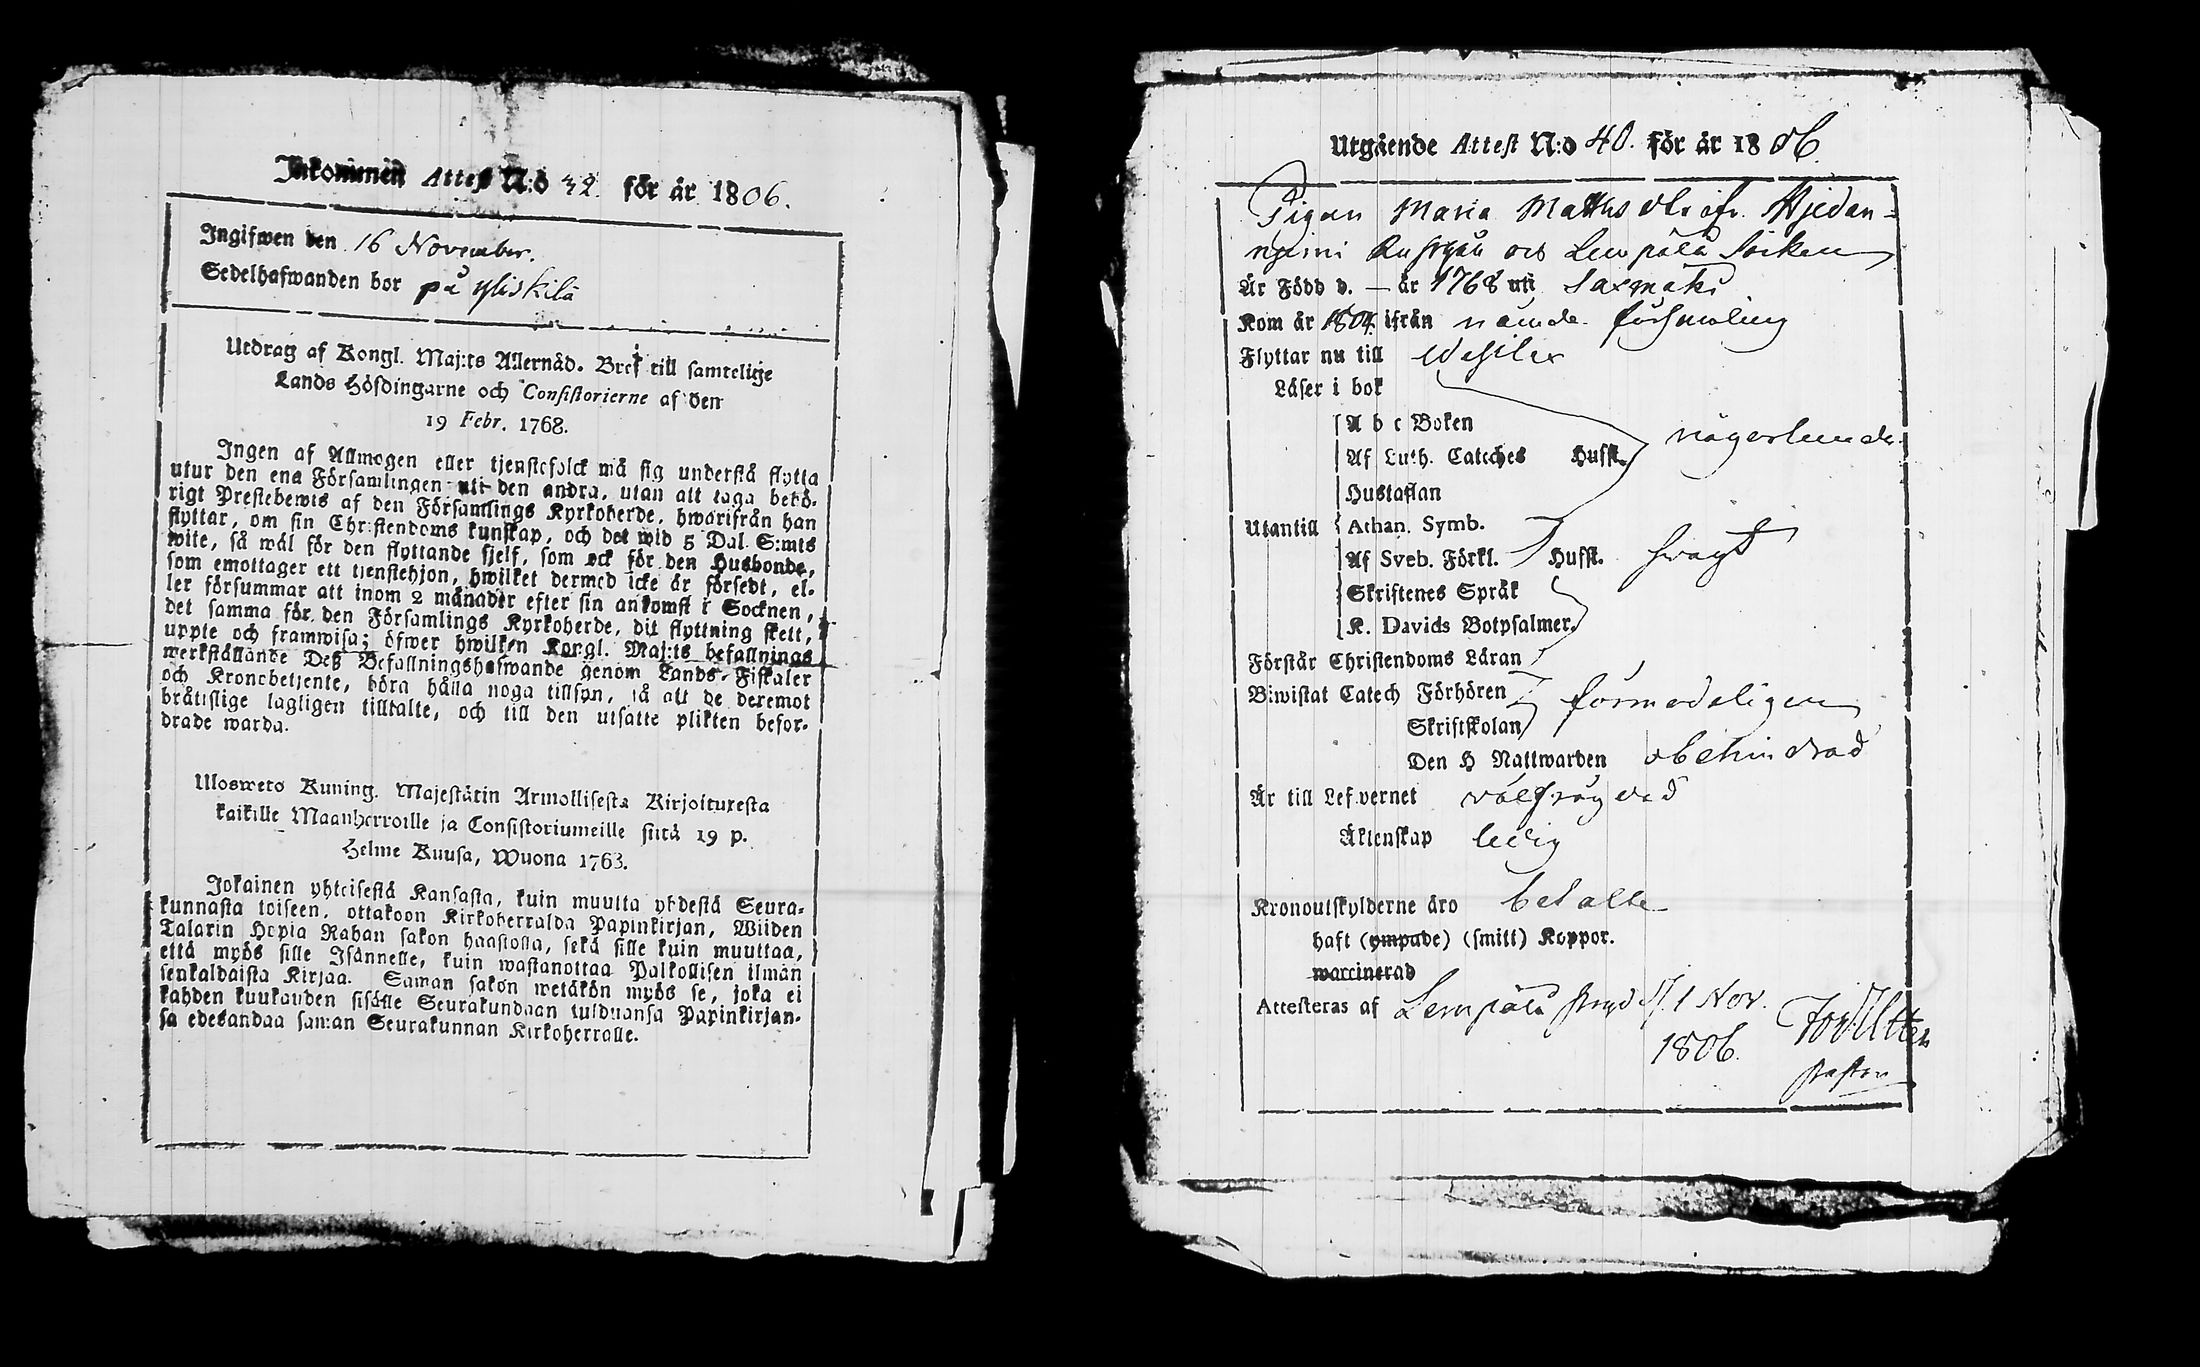 Inkommen Attest N:o 42 för år 1806.
Ingifwen den 16 November.
Sedelhafwanden bor på yliskilä
Utdrag af Kongl. Maj:ts Allernåd. Bref till samtelige
Lands Höfdingarne och Consistorierne af den
19 Febr. 1768.
Ingen af Allmogen eller tjenstefolck må sig understå flytta
utur den ena Församlingen uti den andra, utan att taga behö-
rigt Prestebewis af den Församlings Kyrkoherde, hwarifrån han
flyttar, om sin Christendoms kunskap, och det wid 5 Dal. S:mts
wite, så wäl för den flyttande sjelf, som ock för den Husbonde,
som emottager ett tjenstehjon, hwilket dermed icke är försedt, el-
ler försummar att inom 2 månader efter sin ankomst i Socknen,
det samma för den Församlings Kyrkoherde, dit flyttning skett,
uppte och framwisa; öfwer hwilken Kongl. Maj:ts befallnings
werkställande Deß Befallningshafwande genom Lands-Fiskaler
och Kronobetjente, böra hålla noga tillsyn, så att de deremot
bråtislige lagligen tilltalte, och till den utsatte plikten befor-
drade warda.
Ulosweto Kuning. Majestätin Armollisesta Kirjoituxesta
kaikille Maanherroille ja Consistoriumeille siitä 19 p.
Helme Kuusa, Wuona 1768.
Jokainen yhteisestä Kansasta, kuin muutta yhdestä Seura-
kunnasta toiseen, ottakoon Kirkoherralda Papinkirjan, Wiiden
Talarin Hopia Rahan sakon haastolla, sekä sille kuin muuttaa,
että myös sille Isännelle, kuin wastanottaa Palkollisen ilman
senkaldaista Kirjaa. Saman sakon wetäkön myös se, joka ei
kahden kuukauden sisälle Seurakundaan tulduansa Papinkirjan-
sa edesandaa saman Seurakunnan Kirkoherralle.
Utgående Attest N:o 40. för år 1806.
Pigan Maria Matts dr ifr.
Lempälä Socken
Är Född d. — år 1768 uti Saxmäki
Kom år 1804 ifrån nämde församling
Flyttar nu till
Läser i bok
A b c Boken
Af Luth. Cateches Husst. någorlunda
Hustaflan
Utantill Athan. Symb.
Af Sveb. Förkl. Husst. swagt
Skriftenes Språk
K. Davids Botpsalmer.
Förstår Christendoms Läran
Biwistat Catech Förhören förmodeligen
Skriftskolan
Den H Nattwarden obehindrad
Är till Lefvernet välfrägdad
Äktenskap ledig
Kronoutskylderne äro betalte
haft (ympade) (smitt) Koppor.
waccinerad
Attesteras af Lempälä d. 1 Nov.
1806.
Pastor